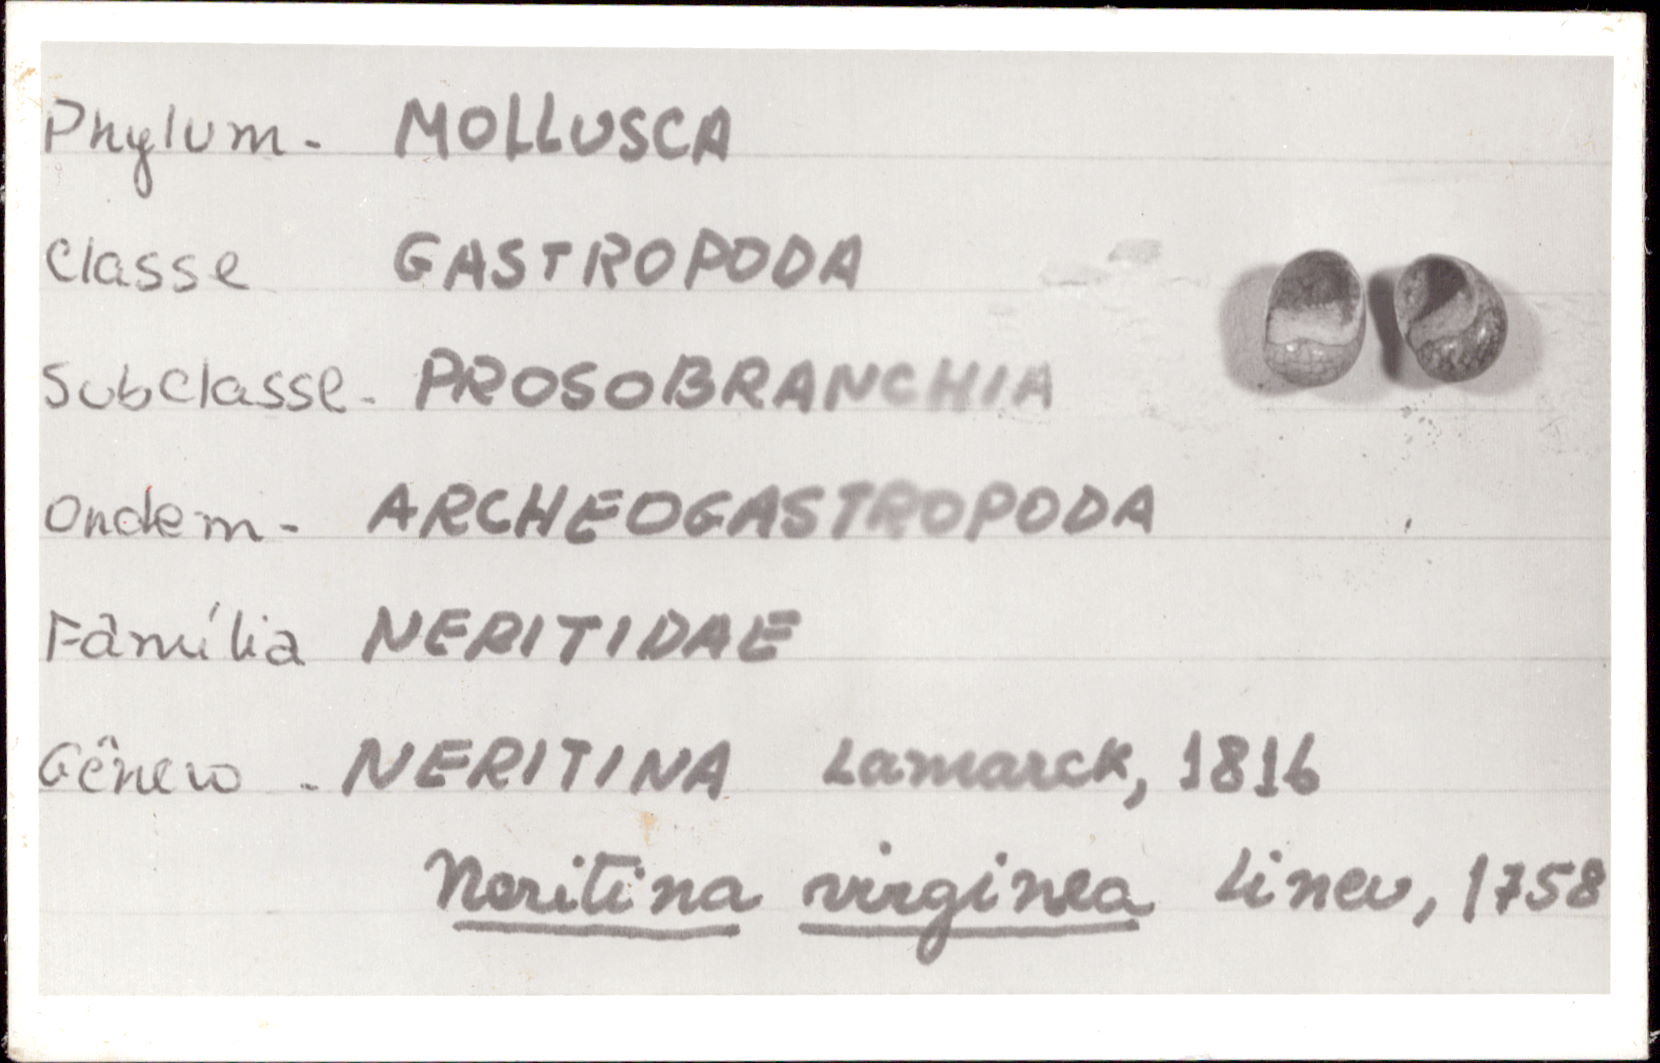 Phylum - MOLLUSCA
Classe GASTROPODA
Subclasse - PROSOBRANCHIA
Ordem - ARCHEOGASTROPODA
Fâmília NERITIDAE
Gênero - NERITINA Lamarck, 1816
Neritina virginea Lineu, 1758